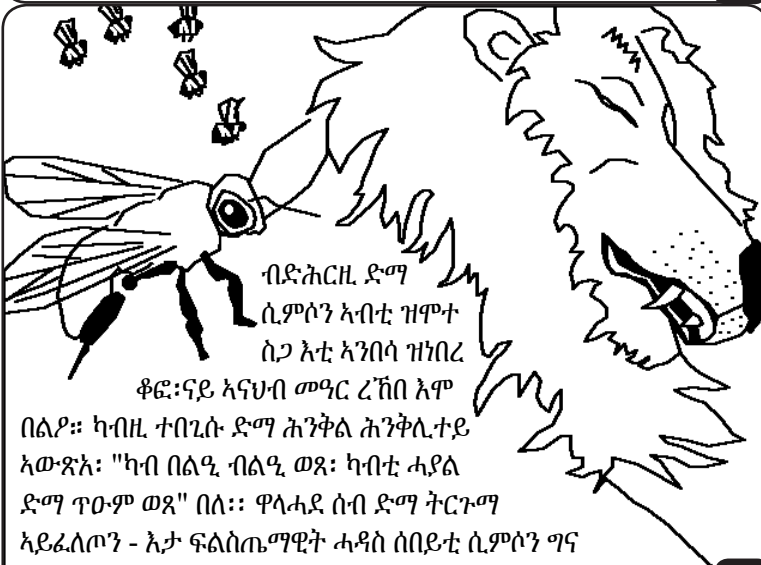 ብድሕርዚ ድማ
ሲምሶን ኣብቲ ዝሞተ
ስጋ እቲ ኣንበሳ ዝነበረ
ቆፎ፡ናይ ኣናህብ መዓር ረኸበ እሞ
በልዖ። ካብዚ ተበጊሱ ድማ ሕንቅል ሕንቅሊተይ
ኣውጽአ፡ "ካብ በልዒ ብልዒ ወጸ፡ ካብቲ ሓያል
ድማ ጥዑም ወጸ" በለ፡፡ ዋላሓደ ሰብ ድማ ትርጉማ
ኣይፈለጦን - እታ ፍልስጤማዊት ሓዳስ ሰበይቲ ሲምሶን ግና